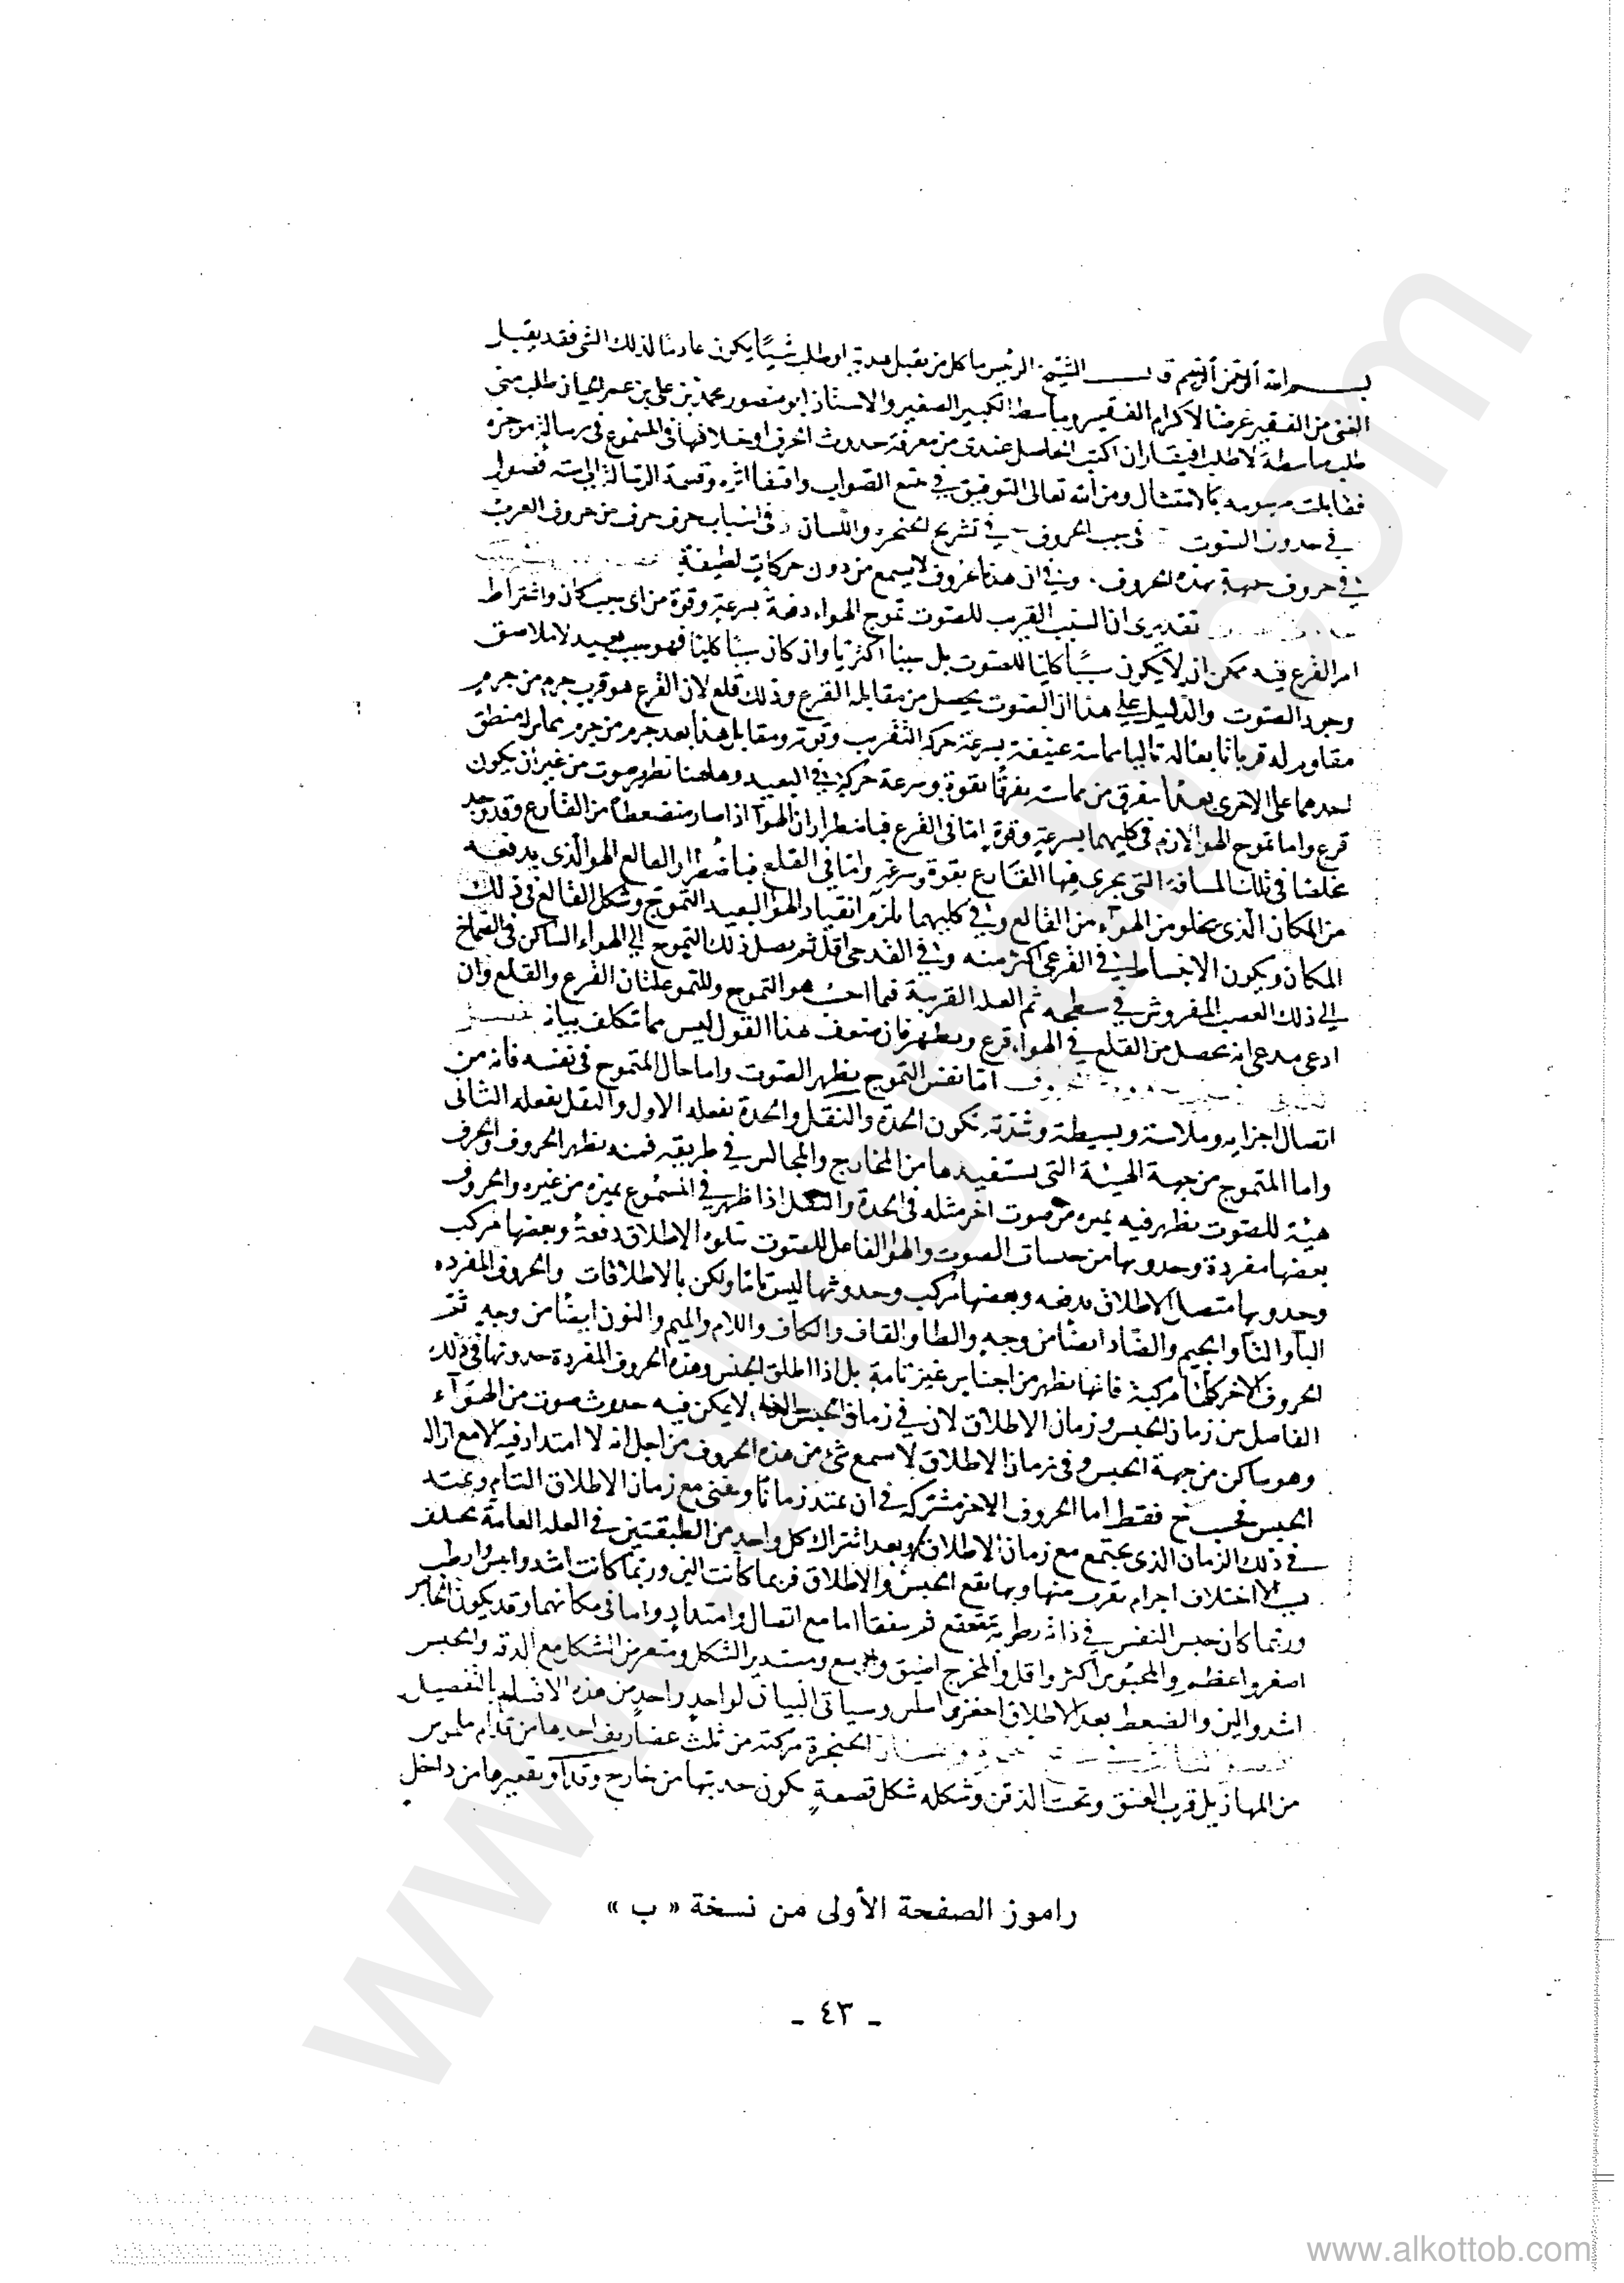 بسم الله الرحمن الرحيم قال الشيخ الرئيس ما كل من يقبل هدية او طلب شيئا يكون عادما لذلك الشى فقد يقبل
الغنى من الفقير غرضا لاكرام الفقير ويباسط الكبير الصغير والاستاذ ابو منصور محمد بن على بن عمر الخيان طلب منى
طلب مباسطة لا طلب افتقار ان اكتب الحاصل عندى من معرفة حدوث الحرف واختلافها فى المسموع فى رسالة موجزه
فقابلت مرسومه بالامتثال ومن الله تعالى التوفيق فى تتبع الصواب واقتفا اثره وقسمة الرسالة الى سته فصول
فى حدوث الصوت فى سبب الحروف فى تشريح الحنجره واللسان فى اسباب حرف حرف من حروف العرب
فى حروف شبهية بهذه الحروف وفى ان هذه الحروف لا يسمع من دون حركات لطيفة
تقديرى ان السبب القريب للصوت تموج الهواء دفعة بسرعة وقوة من اى سبب كان واشتراط
امر القرع فيه ممكن ان لا يكون سببا كليا للصوت بل سببا اكثريا وان كان سببا كليا فهو سبب بعيد لا ملاصق
وجود الصوت والدليل على هذا ان الصوت يحصل من مقابله القرع وذلك قلع لان القرع هو قرب جرم من جرم
مقاوم له قربا تاليا مماسة عنيفة بسرعة حركة التقريب وقوته ومقابل هذا بعد جرم من جرم مماس له منطبق
احدهما على الاخرى بعدا يتفرق من مماسته تفرقا بقوة وسرعة حركة فى البعيد وههنا يظهر صوت من غير ان يكون
قرع واما تموج الهوا لازم فى كليهما بسرعة وقوة اما فى القرع فباضطرار ان الهوا اذا صار منضغطا من القارع وقد وجد
مخلصا فى تلك المسافة التى يجرى فيها القارع بقوة وسرعة واما فى القلع فباضطرار القالع الهوا الذى يدفعه
من المكان الذى يخلو من الهواء من القالع وفى كليهما يلزم انقياد الهوا البعيد التموج وشكل القالع فى ذلك
المكان ويكون الانبساط فى القرعى اكثر منه وفى القلعى اقل ثم يصل ذلك التموج الى الهواء الساكن فى الصماخ
الى ذلك العصب المفروش فى سطحه ثم العلة القريبة فيما احسب هو التموج وللتموج علتان القرع والقلع وان
ادعى مدعى انه يحصل من القلع فى الهواء قرع ويظهر فان ضعف هذا القول ليس مما تكلف بيانه
اما نفس التموج يظهر الصوت واما حال المتموج فى نفسه فانه من
اتصال اجزايه وملاسته وبسيطة وشدته تكون الحدة والثقل والحدة تفعله الاول والثقل يفعله الثانى
واما المتموج من جهة الهيئة التى يستفيدها من المخارج والمحابس فى طريقه فمنه يظهر الحروف والحرف
هيئة للصوت يظهر فيه يميزه من صوت اخر مثله فى الحدة والثقل اذا ظهر فى المسموع يميزه من غيره والحروف
بعضها مفردة وحدوثها من حبسات الصوت والهوا الفاعل للصوت تتلوه الاطلاق دفعة وبعضها مركب
وحدوثها متصل الاطلاق بدفعه وبعضها مركب وحدوثها ليس تاما ولكن بالاطلاقات والحروف المفرده
البا والتا والجيم والضاد ايضا من وجه والطا والقاف والكاف واللام والميم والنون ايضا من وجه ثم
الحروف الاخر كلها مركبة فانها يظهر من اجناس غير تامة بل اذا اطلق الحبس وهذه الحروف المفردة حدوثها فى ذلك
الفاصل من زمان الحبس وزمان الاطلاق لان فى زمان الحبس لا يمكن فيه حدوث صوت من الهواء
وهو ساكن من جهة الحبس وفى زمان الاطلاق لا يسمع شئ من هذه الحروف من اجل انه لا امتداد فيه لا مع ازالة
الحبس فحسب فقط اما الحروف الاخر مشتركة فى ان يمتد زمانا ويفنى مع زمان الاطلاق التام ويمتد
فى ذلك الزمان الذى يجتمع مع زمان الاطلاق وبعد اشتراك كل واحد من الطبقتين فى العله العامة يختلف
بسبب اختلاف اجرام يقرب منها وبها يقع الحبس والاطلاق فربما كانت الين وربما كانت اشد وايبس وارطب
وربما كان حبس النفس فى ذاته رطوبة تتفقع ثم يتفقا اما مع اتصال وامتداد واما فى مكانهما وقد يكون الحابس
اصغر واعظم والمحبوس اكثر واقل والمخرج اضيق واوسع ومستدير الشكل ومتعرض الشكل مع الدقه والحبس
اشد والين والضغط بعد الاطلاق احفز واسلس وسياتى البيان لواحد واحد من هذه الاقسام بالتفصيل
الحنجرة مركبة من ثلث غضاريف احدها من قدام ملموس
من المهازيل قرب العنق وتحت الذقن وشكله شكل قصعة يكون حدبتها من خارج وقدام وتقعيرها من داخل
راموز الصفحة الأولى من نسخة « ب »
- ٤٣ -
www.alkottob.com